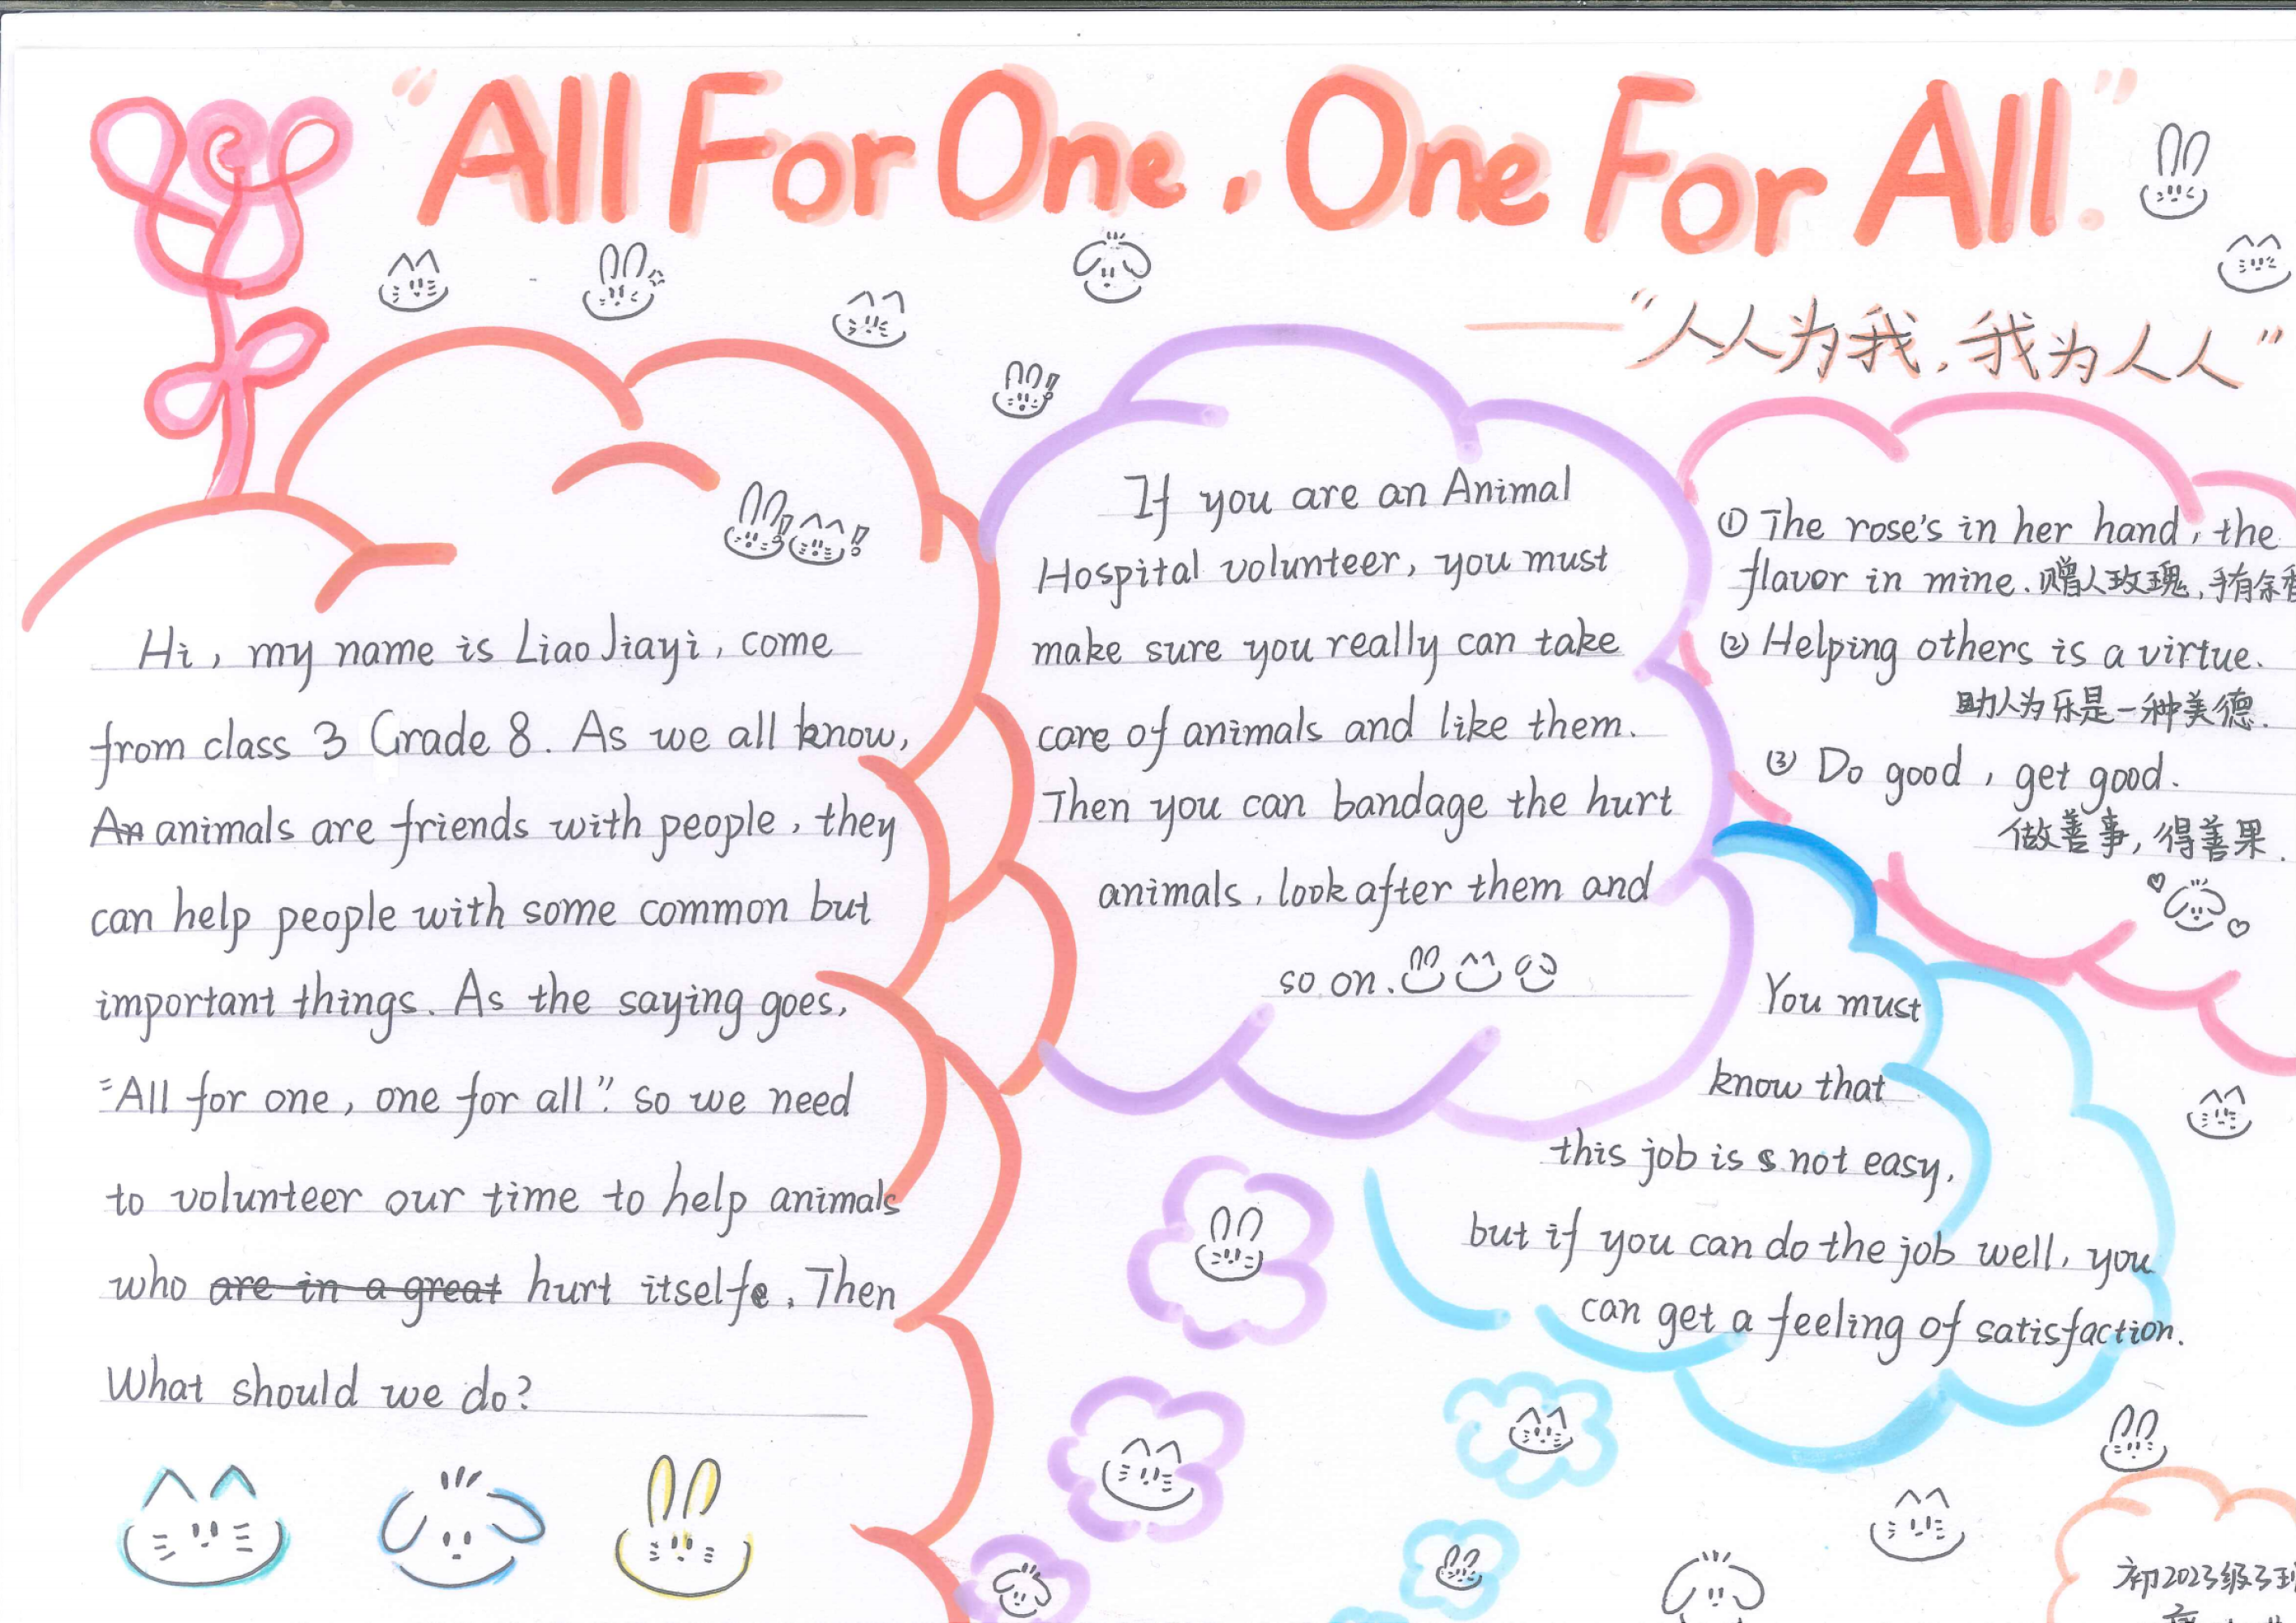 "All For One, One For All."
——"人人为我,我为人人"
Hi, my name is Liao Jiayi, come
from class 3 Grade 8. As we all know,
An animals are friends with people, they
can help people with some common but
important things. As the saying goes,
"All for one, one for all". so we need
to volunteer our time to help animals
who are in a great hurt itselfe. Then
What should we do?
If you are an Animal
Hospital volunteer, you must
make sure you really can take
care of animals and like them.
Then you can bandage the hurt
animals, look after them and
so on.
① The rose's in her hand, the
flavor in mine. 赠人玫瑰,手有余香
② Helping others is a virtue.
助人为乐是一种美德.
③ Do good, get good.
做善事,得善果.
You must
know that
this job is s not easy,
but if you can do the job well, you
can get a feeling of satisfaction.
初2023级3班